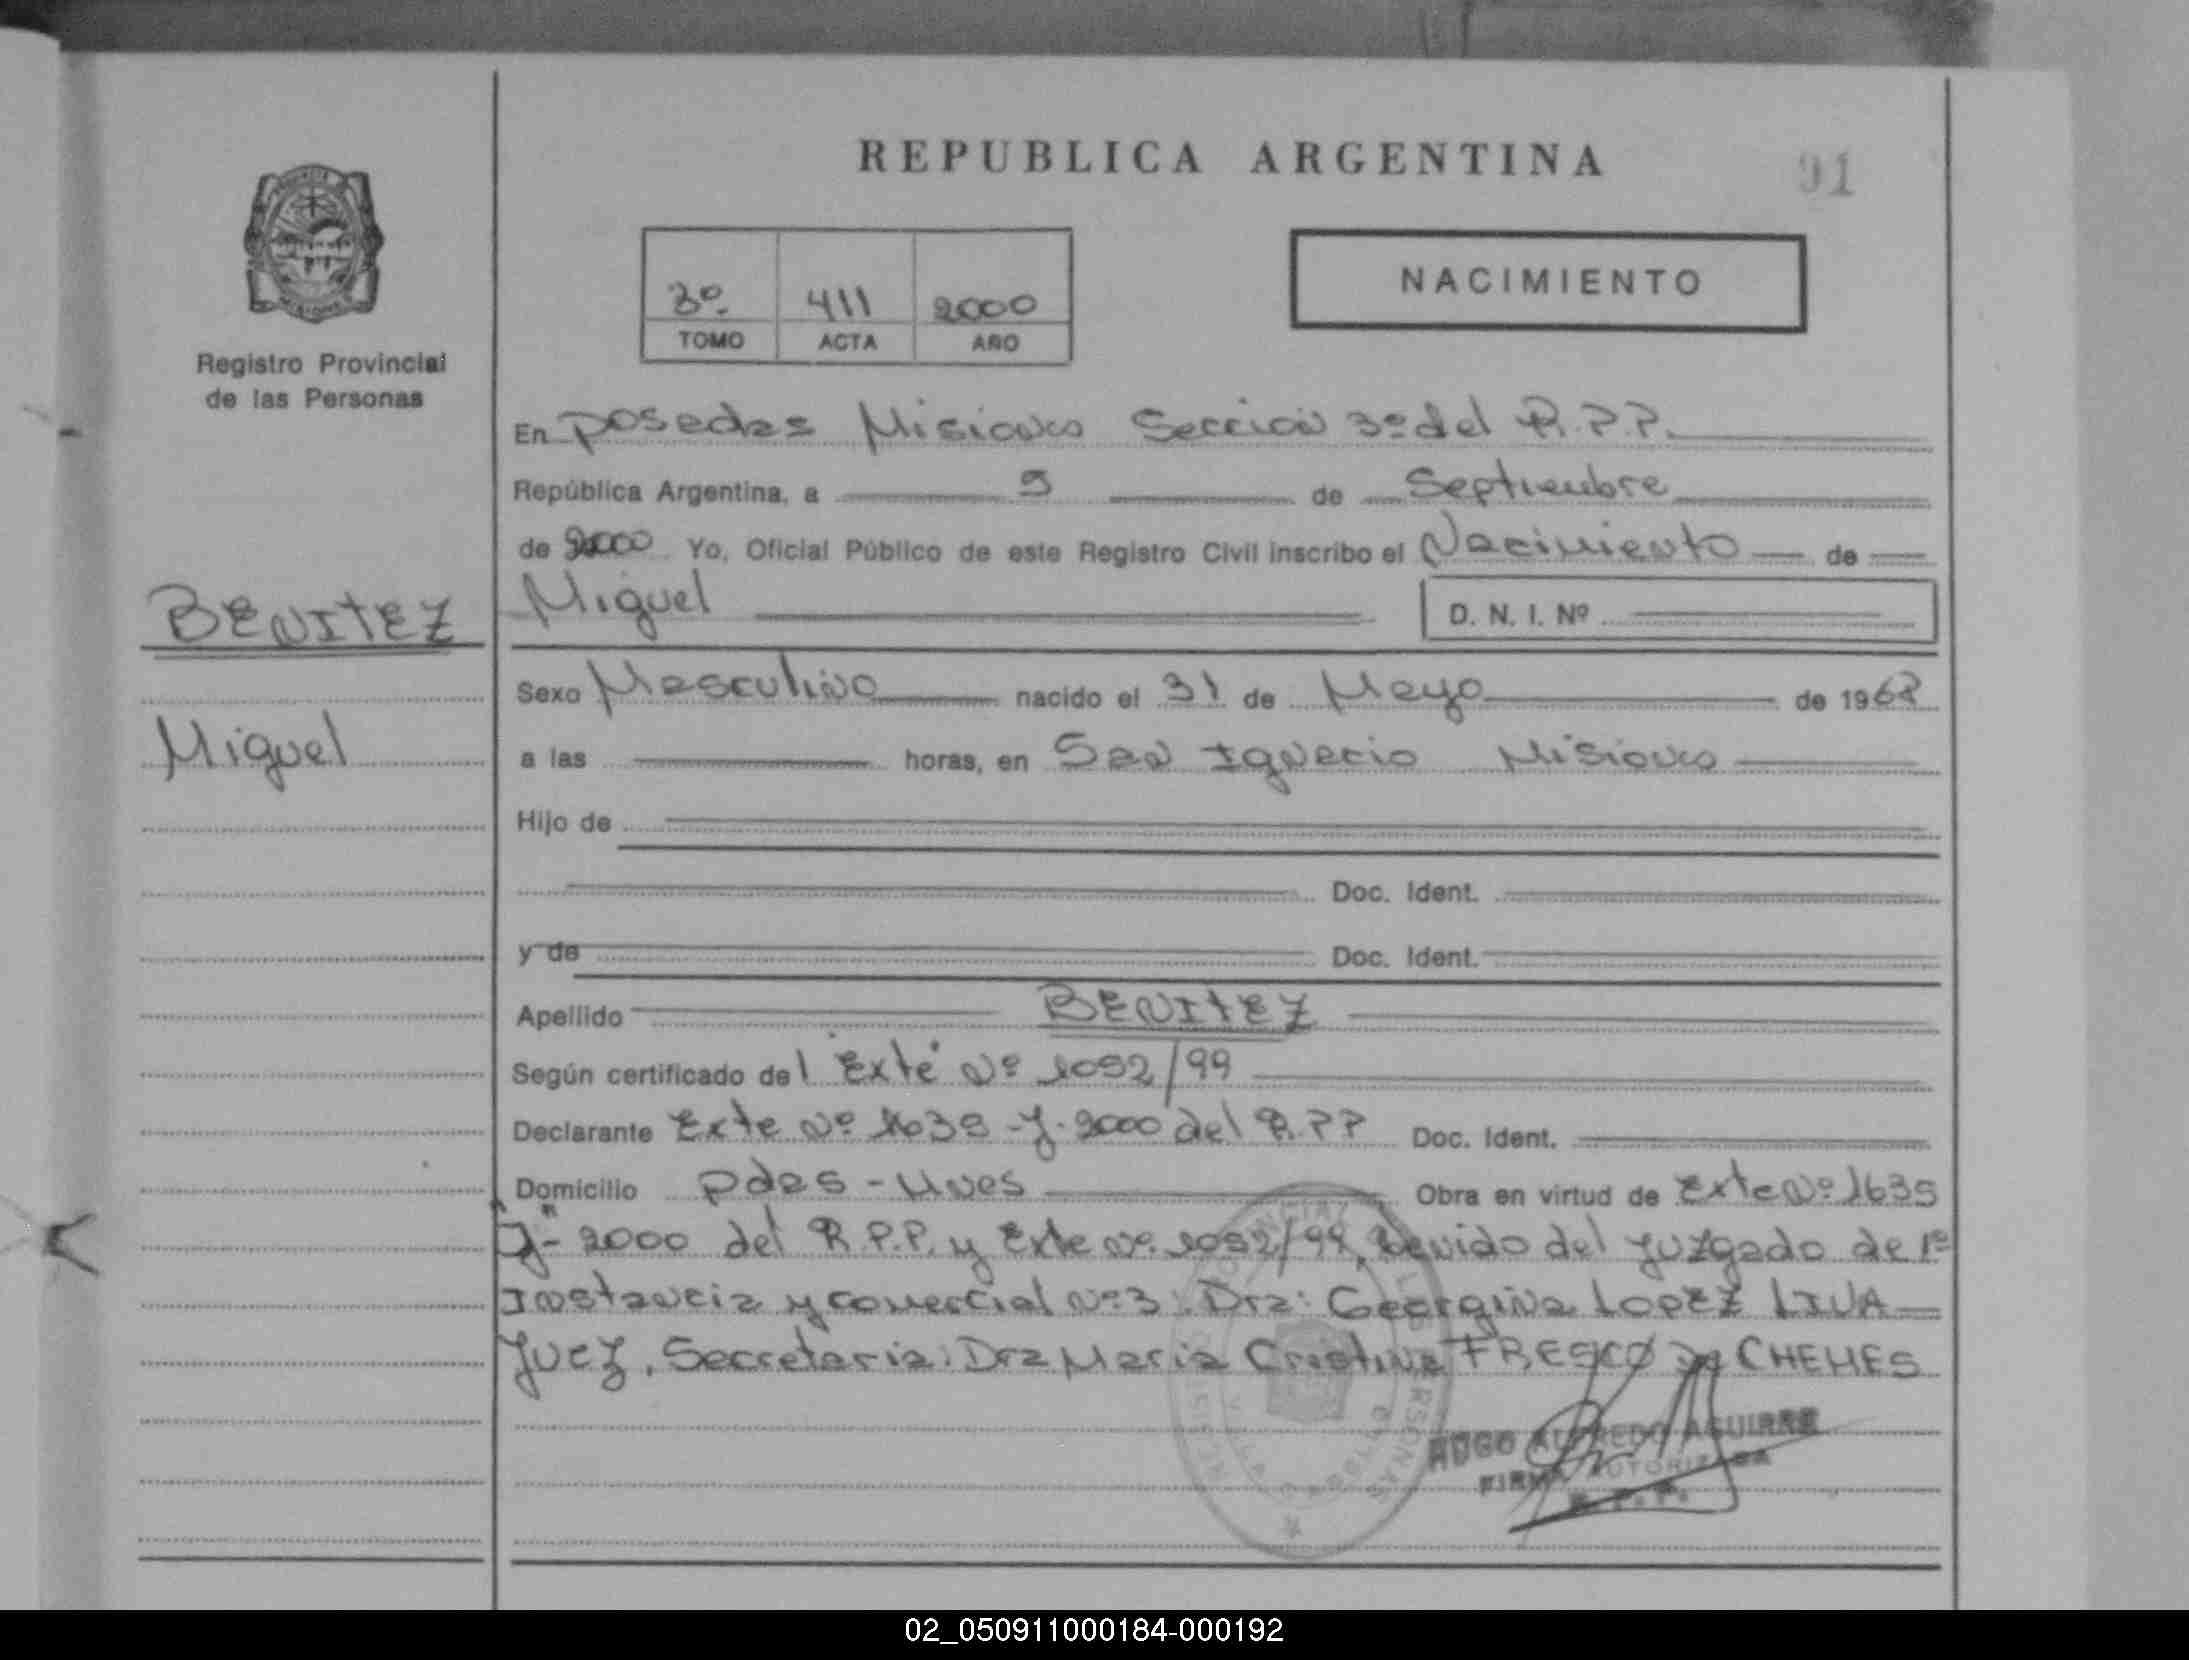 REPUBLICA ARGENTINA
91
3º 411 2000
TOMO ACTA AÑO
NACIMIENTO
Registro Provincial
de las Personas
En Posadas Misiones Sección 3º del R.P.P.
República Argentina, a 9 de Septiembre
de 2000 Yo, Oficial Público de este Registro Civil inscribo el Nacimiento de
BENITEZ
Miguel
Miguel D. N. I. Nº
Sexo Masculino nacido el 31 de Mayo de 1968
a las horas, en San Ignacio Misiones
Hijo de
Doc. Ident.
y de Doc. Ident.
Apellido BENITEZ
Según certificado del Exte Nº 1092/99
Declarante Exte Nº 1639-J-2000 del R.P.P Doc. Ident.
Domicilio Pdas - Mnes Obra en virtud de Exte Nº 1639
"J"- 2000 del R.P.P. y Exte Nº 1092/99, venido del Juzgado de 1º
Instancia y comercial Nº 3: Dra: Georgina Lopez LIVA
Juez, Secretaria: Dra Maria Cristina FRESCO DE CHEMES
HUGO ALFREDO AGUIRRE
FIRMA AUTORIZADA
R.P.P.
02_050911000184-000192